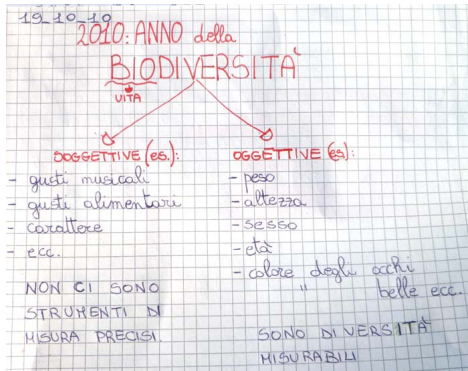 19_10_10
2010: ANNO della
BIODIVERSITÀ
VITA
SOGGETTIVE (es.):
- gusti musicali
- gusti alimentari
- carattere
- ecc.
NON CI SONO
STRUMENTI DI
MISURA PRECISI.
OGGETTIVE (es):
- peso
- altezza
- sesso
- età
- colore degli occhi
" belle ecc.
SONO DIVERSITÀ
MISURABILI